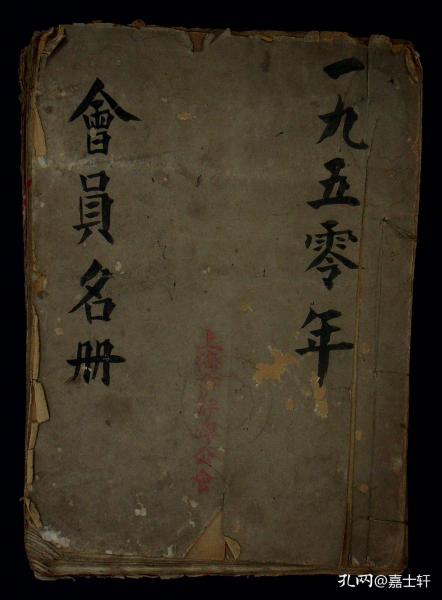 一九五零年
會員名册
上海
公會
孔网@嘉士轩